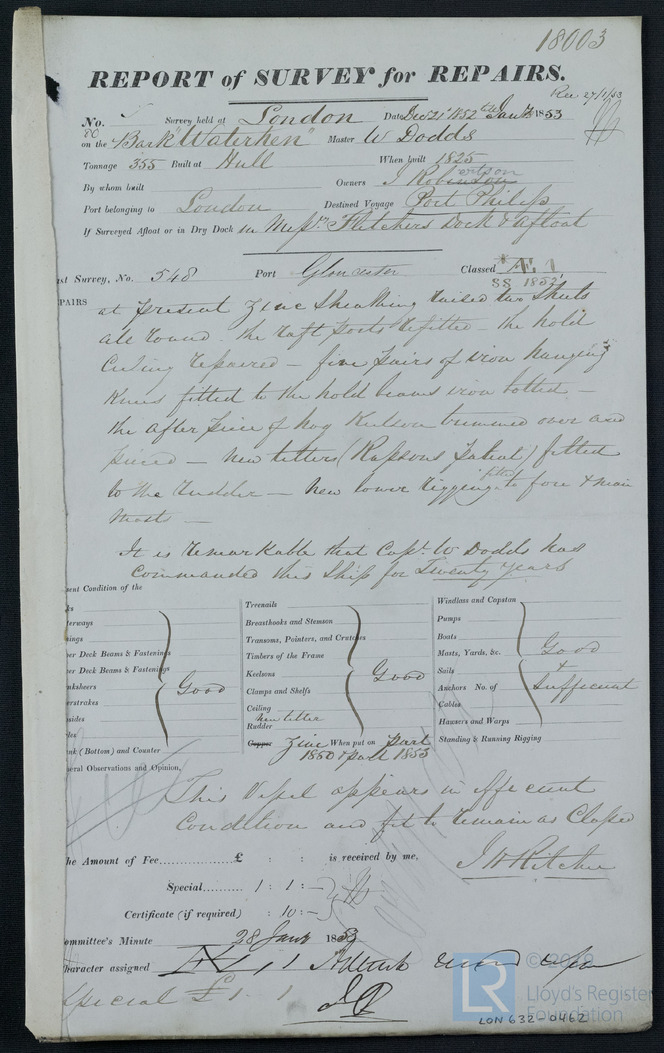 18003
REPORT of SURVEY for REPAIRS.
Rec 27/1/53
No. 80 Survey held at London Date Dec 21st 1852 Jany 1853
on the Bark "Waterhen" Master W Dodds
Tonnage 355 Built at Hull When built 1825
By whom built Owners J Robertson
Port belonging to London Destined Voyage Port Philip
If Surveyed Afloat or in Dry Dock in Messrs Fletchers Dock & afloat
st Survey, No. 548 Port Gloucester Classed Æ 1
SS 1852
PAIRS at present Zinc Sheathing raised two Sheets
all round the raft ports refitted - the hold
Ceiling repaired - five pairs of iron hanging
Knees fitted to the hold beams iron bolted -
the after piece of hog Keelson trimmed over and
pieced - New tillers (Rapsons Patent) fitted
to the Rudder - New lower rigging fitted to fore & main
Mast -
It is remarkable that Capt. W Dodds has
Commanded this Ship for Twenty years
ent Condition of the
ks
terways
ings
er Deck Beams & Fastenings
er Deck Beams & Fastenings
nksheers
erstrakes
sides
les
nk (Bottom) and Counter
Good
Treenails
Breasthooks and Stemson
Transoms, Pointers, and Crutches
Timbers of the Frame
Keelsons
Clamps and Shelfs
Ceiling
Rudder new tiller
Good
Copper Zinc When put on part
1850 & part 1853
Windlass and Capstan
Pumps
Boats
Masts, Yards, &c.
Sails
Anchors No. of
Cables
Hawsers and Warps
Standing & Running Rigging
Good
&
Sufficient
eral Observations and Opinion,
This Vessel appears in efficient
Condition and fit to remain as Classed
he Amount of Fee............ £ : : is received by me,
J H Ritchie
Special......... 1 : 1 : -
Certificate (if required) : 10 : -
ommittee's Minute 28 Jany 1853
haracter assigned Æ 1
Special £1 . 1
LR
© 2019
Lloyd's Register
Foundation
LON 632-0462